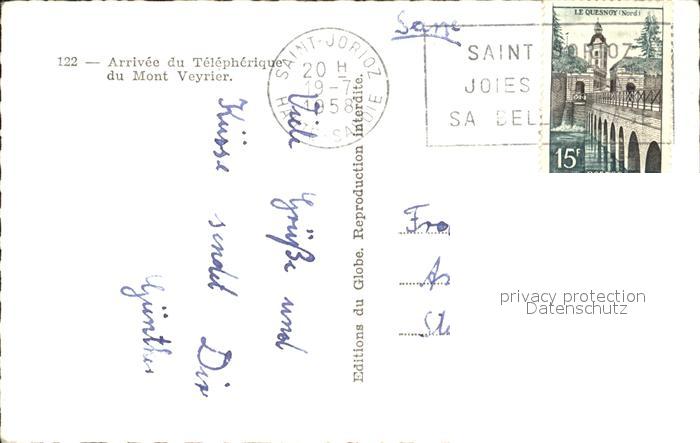 Sarre
122 — Arrivée du Téléphérique
du Mont Veyrier.
SAINT-JORIOZ
20 H
19-7
1958
HAUTE-SAVOIE
SAINT JORIOZ
JOIES
SA BEL
LE QUESNOY (Nord)
15F
Viele Grüße und
Küsse sendet Dir
Günther
Editions du Globe. Reproduction interdite.
Fra
As
St
privacy protection
Datenschutz